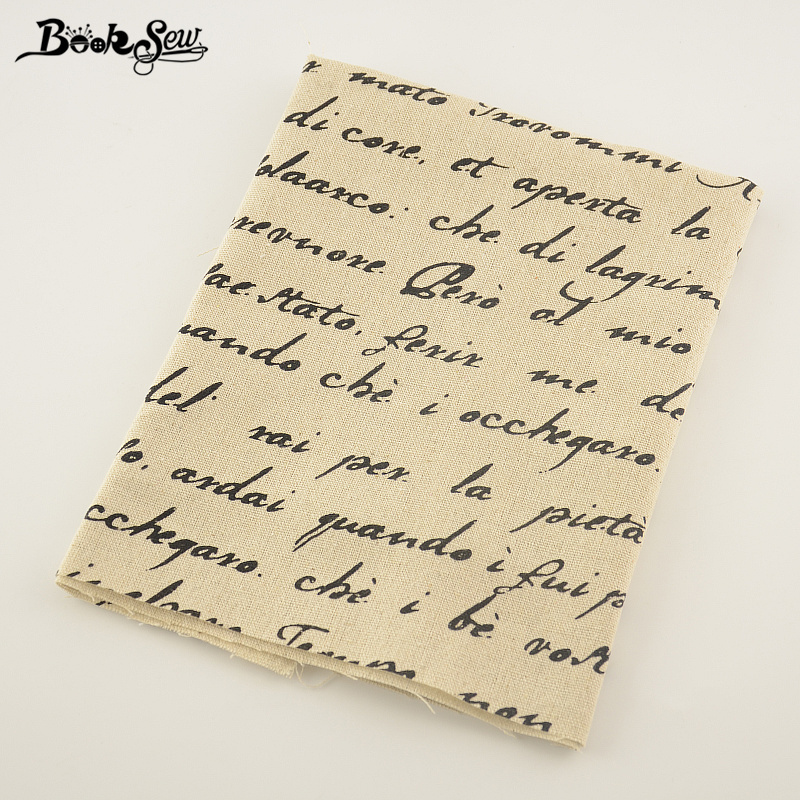 Book Sew
mato Trovommi
di core. et aperta la
che. di lagrim
Però al mio
Stato. ferir me. de
uando chè. i occhegaro.
del rai per. la pietà
o. andai quando i fui p
cchegaro. chè i bè vost
Tempo non